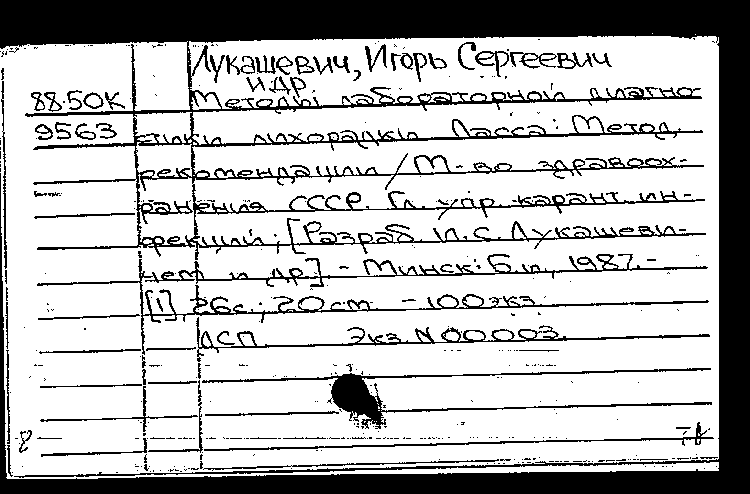 Лукашевич, Игорь Сергеевич
и др
88-50К Методы лабораторной диагно-
9563 стики лихорадки Ласса: Метод.
рекомендации / М-во здравоох-
ранения СССР. Гл. упр. карант. ин-
фекций; [Разраб. И.С. Лукашеви-
чем и др.]. - Минск: Б.и., 1987. -
[1], 26с.; 20 см. - 100 экз.
ДСП Экз. N 00003.
8